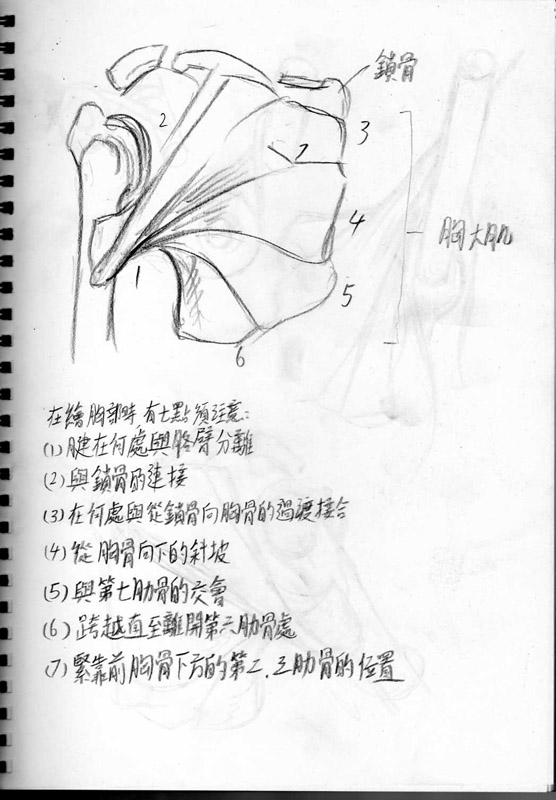 鎖骨
2
3
7
4
胸大肌
1
5
6
在繪胸部時,有七點須注意:
(1)腱在何處與胳臂分離
(2)與鎖骨的連接
(3)在何處與從鎖骨向胸骨的過渡接合
(4)從胸骨向下的斜坡
(5)與第七肋骨的交會
(6)跨越直至離開第六肋骨處
(7)緊靠前胸骨下方的第二.三肋骨的位置